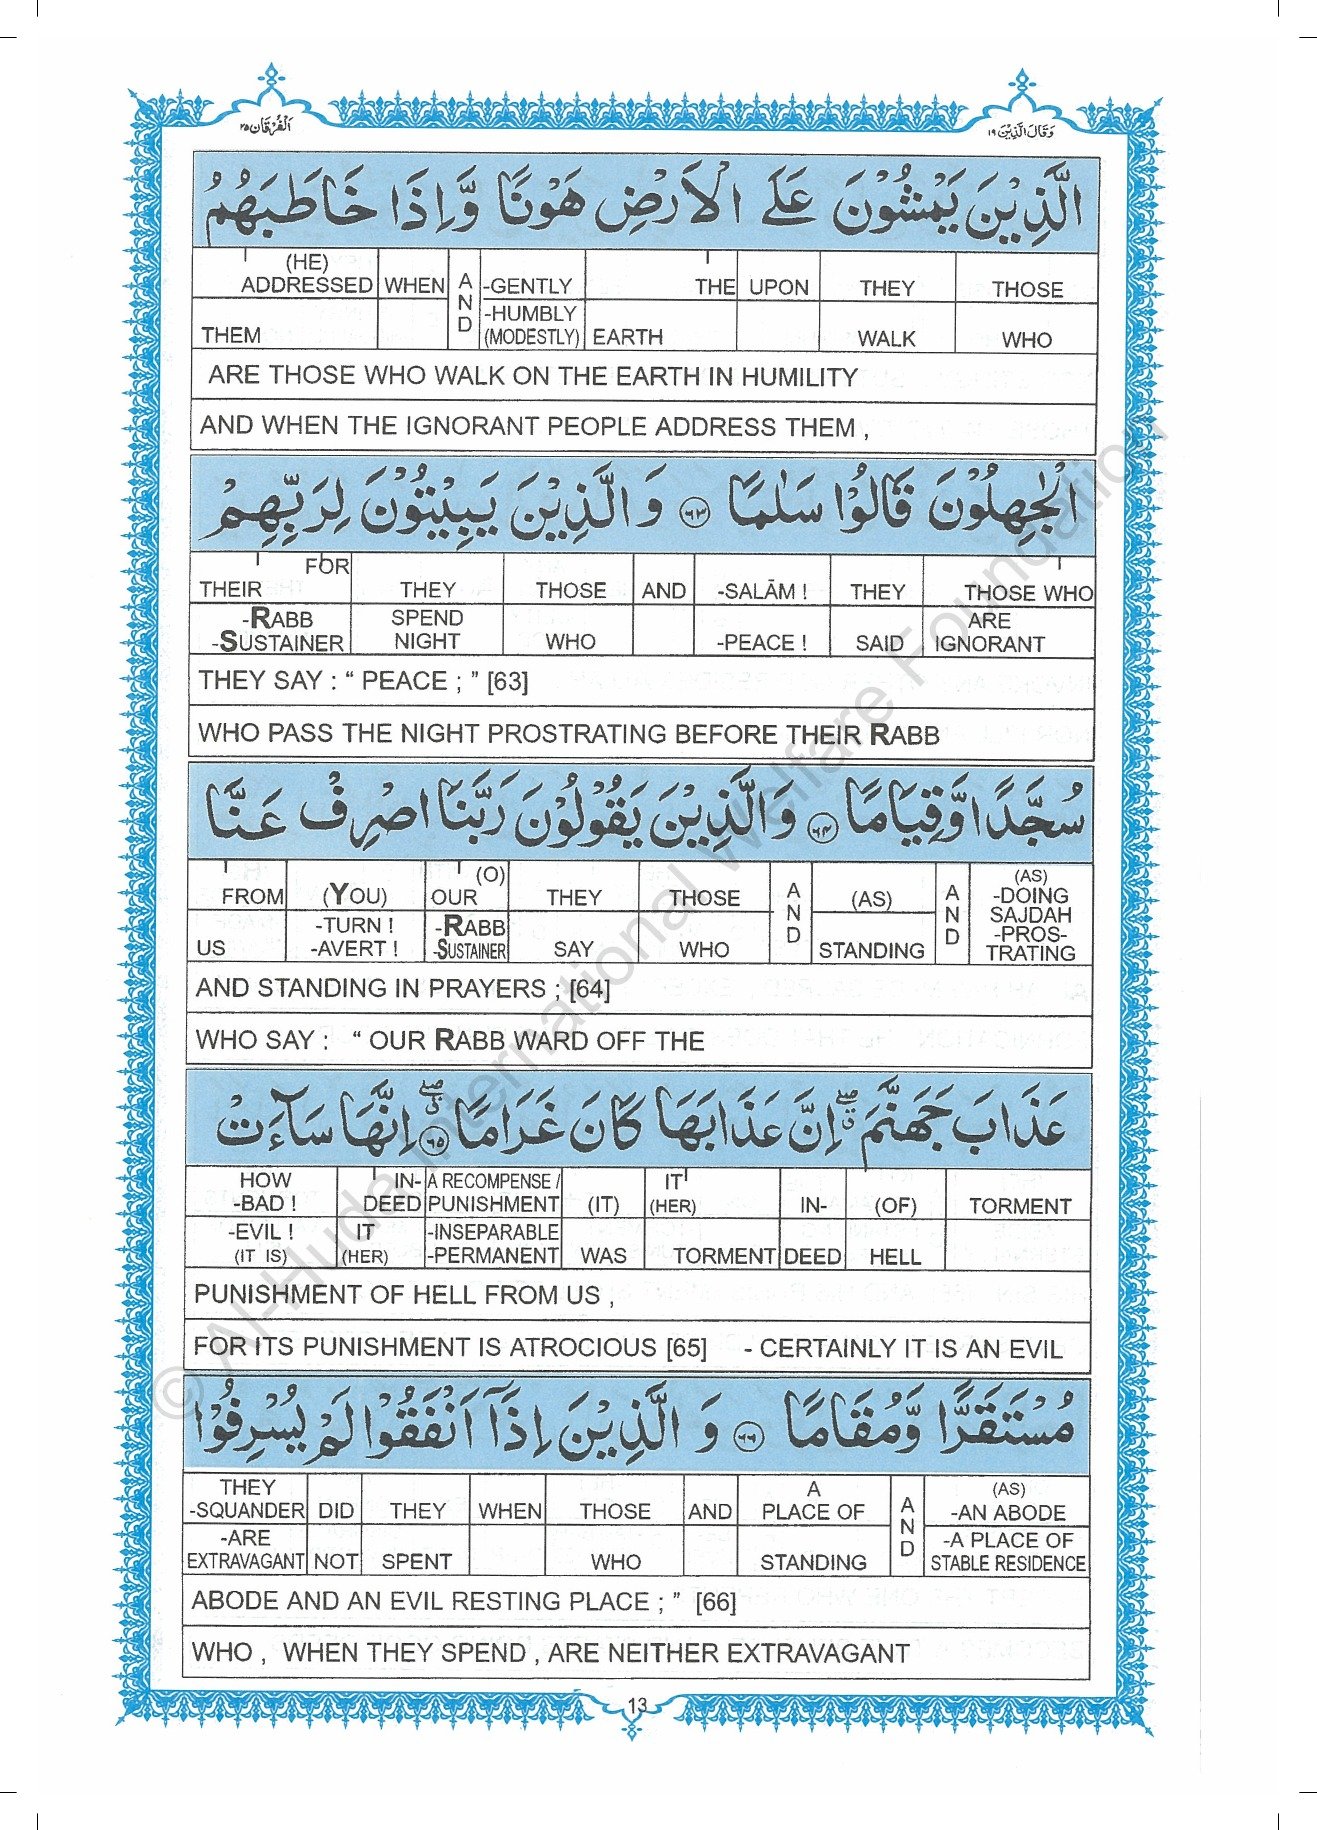 الفرقان ٢٥
وقال الذين ١٩
الَّذِيْنَ يَمْشُوْنَ عَلَى الْاَرْضِ هَوْنًا وَّاِذَا خَاطَبَهُمُ
(HE) ADDRESSED THEM | WHEN | AND | -GENTLY -HUMBLY (MODESTLY) | THE EARTH | UPON | THEY WALK | THOSE WHO
ARE THOSE WHO WALK ON THE EARTH IN HUMILITY
AND WHEN THE IGNORANT PEOPLE ADDRESS THEM ,
الْجٰهِلُوْنَ قَالُوْا سَلٰمًا ٦٣ وَالَّذِيْنَ يَبِيْتُوْنَ لِرَبِّهِمْ
FOR THEIR -RABB -SUSTAINER | THEY SPEND NIGHT | THOSE WHO | AND | -SALĀM ! -PEACE ! | THEY SAID | THOSE WHO ARE IGNORANT
THEY SAY : “ PEACE ; ” [63]
WHO PASS THE NIGHT PROSTRATING BEFORE THEIR RABB
سُجَّدًا وَّقِيَامًا ٦٤ وَالَّذِيْنَ يَقُوْلُوْنَ رَبَّنَا اصْرِفْ عَنَّا
FROM US | (YOU) -TURN ! -AVERT ! | (O) OUR -RABB -SUSTAINER | THEY SAY | THOSE WHO | AND | (AS) STANDING | AND | (AS) -DOING SAJDAH -PROS- TRATING
AND STANDING IN PRAYERS ; [64]
WHO SAY : “ OUR RABB WARD OFF THE
عَذَابَ جَهَنَّمَ اِنَّ عَذَابَهَا كَانَ غَرَامًا ٦٥ اِنَّهَا سَآءَتْ
HOW -BAD ! -EVIL ! (IT IS) | IN- DEED IT (HER) | A RECOMPENSE / PUNISHMENT -INSEPARABLE -PERMANENT | (IT) WAS | IT (HER) TORMENT | IN- DEED | (OF) HELL | TORMENT
PUNISHMENT OF HELL FROM US ,
FOR ITS PUNISHMENT IS ATROCIOUS [65] - CERTAINLY IT IS AN EVIL
مُسْتَقَرًّا وَّمُقَامًا ٦٦ وَالَّذِيْنَ اِذَآ اَنْفَقُوْا لَمْ يُسْرِفُوْا
THEY -SQUANDER -ARE EXTRAVAGANT | DID NOT | THEY SPENT | WHEN | THOSE WHO | AND | A PLACE OF STANDING | AND | (AS) -AN ABODE -A PLACE OF STABLE RESIDENCE
ABODE AND AN EVIL RESTING PLACE ; ” [66]
WHO , WHEN THEY SPEND , ARE NEITHER EXTRAVAGANT
13
© Al-Huda International Welfare Foundation